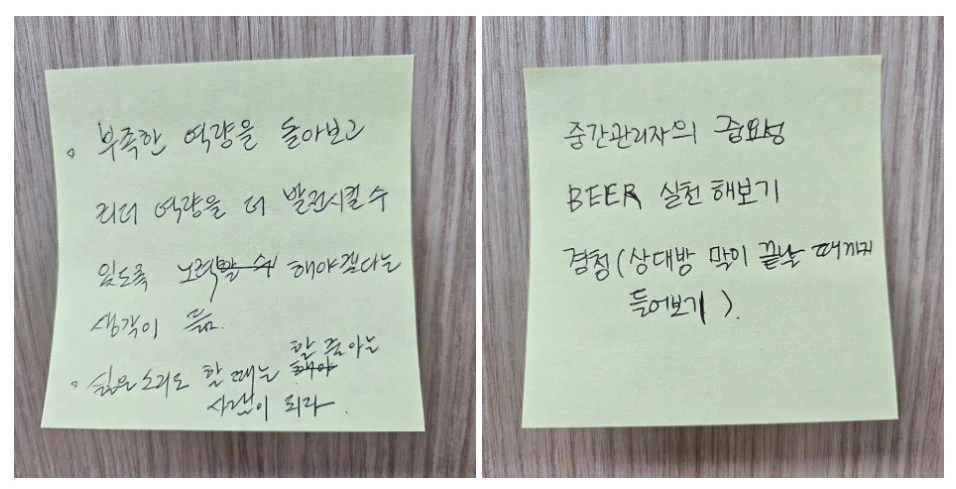 ◦ 부족한 역량을 돌아보고
리더 역량을 더 발전시킬 수
있도록 노력 해야겠다는
생각이 듦.
◦ 싫은소리도 할 때는 할 줄 아는
사람이 되라.
중간관리자의 중요성
BEER 실천 해보기
경청(상대방 말이 끝날 때까지
들어보기).